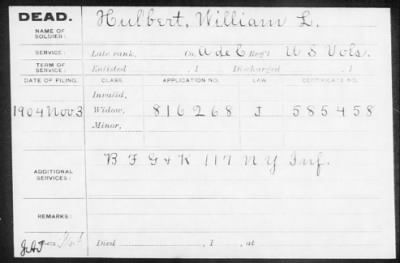 DEAD.
NAME OF SOLDIER:
Hulbert, William L.
SERVICE:
Late rank, Co. A de C Reg't U S Vols.
TERM OF SERVICE:
Enlisted , 1 Discharged , 1
DATE OF FILING.
CLASS.
APPLICATION NO.
LAW.
CERTIFICATE NO.
Invalid,
1904 Nov 3
Widow,
816268
J
585458
Minor,
ADDITIONAL SERVICES:
B F G & K 117 N Y Inf.
REMARKS:
Died , 1 , at